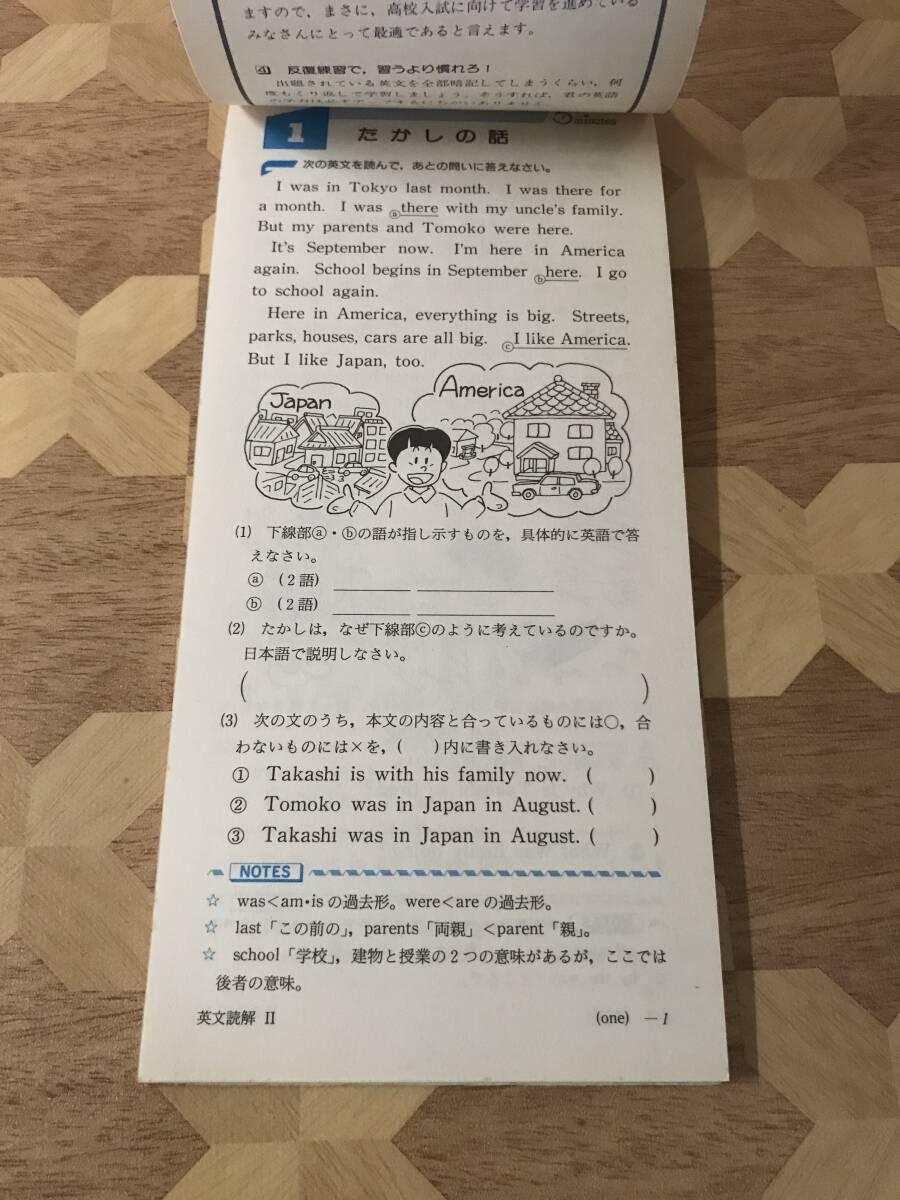 ますので，まさに，高校入試に向けて学習を進めている
みなさんにとって最適であると言えます。
④ 反復練習で，習うより慣れろ！
出題されている英文を全部暗記してしまうくらい，何
度もくり返して学習しましょう。そうすれば，君の英語
1 たかしの話
minutes
次の英文を読んで，あとの問いに答えなさい。
I was in Tokyo last month. I was there for
a month. I was ⓐthere with my uncle's family.
But my parents and Tomoko were here.
It's September now. I'm here in America
again. School begins in September ⓑhere. I go
to school again.
Here in America, everything is big. Streets,
parks, houses, cars are all big. ⓒI like America.
But I like Japan, too.
Japan
America
(1) 下線部ⓐ・ⓑの語が指し示すものを，具体的に英語で答
えなさい。
ⓐ (2語)
ⓑ (2語)
(2) たかしは，なぜ下線部ⓒのように考えているのですか。
日本語で説明しなさい。
( )
(3) 次の文のうち，本文の内容と合っているものには○，合
わないものには×を，( )内に書き入れなさい。
① Takashi is with his family now. ( )
② Tomoko was in Japan in August. ( )
③ Takashi was in Japan in August. ( )
NOTES
☆ was<am・isの過去形。were<areの過去形。
☆ last「この前の」，parents「両親」<parent「親」。
☆ school「学校」，建物と授業の2つの意味があるが，ここでは
後者の意味。
英文読解 II
(one) —1